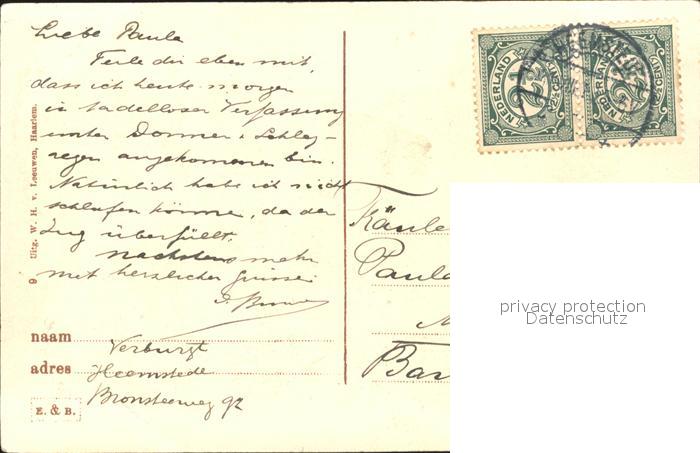 Liebe Paula
Teile dir eben mit,
dass ich heute morgen
in tadelloser Verfassung
unter Donner & Schlag-
regen angekommen bin.
Natürlich habe ich nicht
schlafen können, da der
Zug überfüllt.
nächstens mehr
mit herzlicher Grüsse
naam Verburgt
adres Heemstede
Bronsteeweg 92
E. & B.
9 Uitg. W. H. v. Leeuwen, Haarlem.
NEDERLAND 2½ CENT
NEDERLAND 2½ CENT
HEEMSTEDE
Paula
privacy protection
Datenschutz